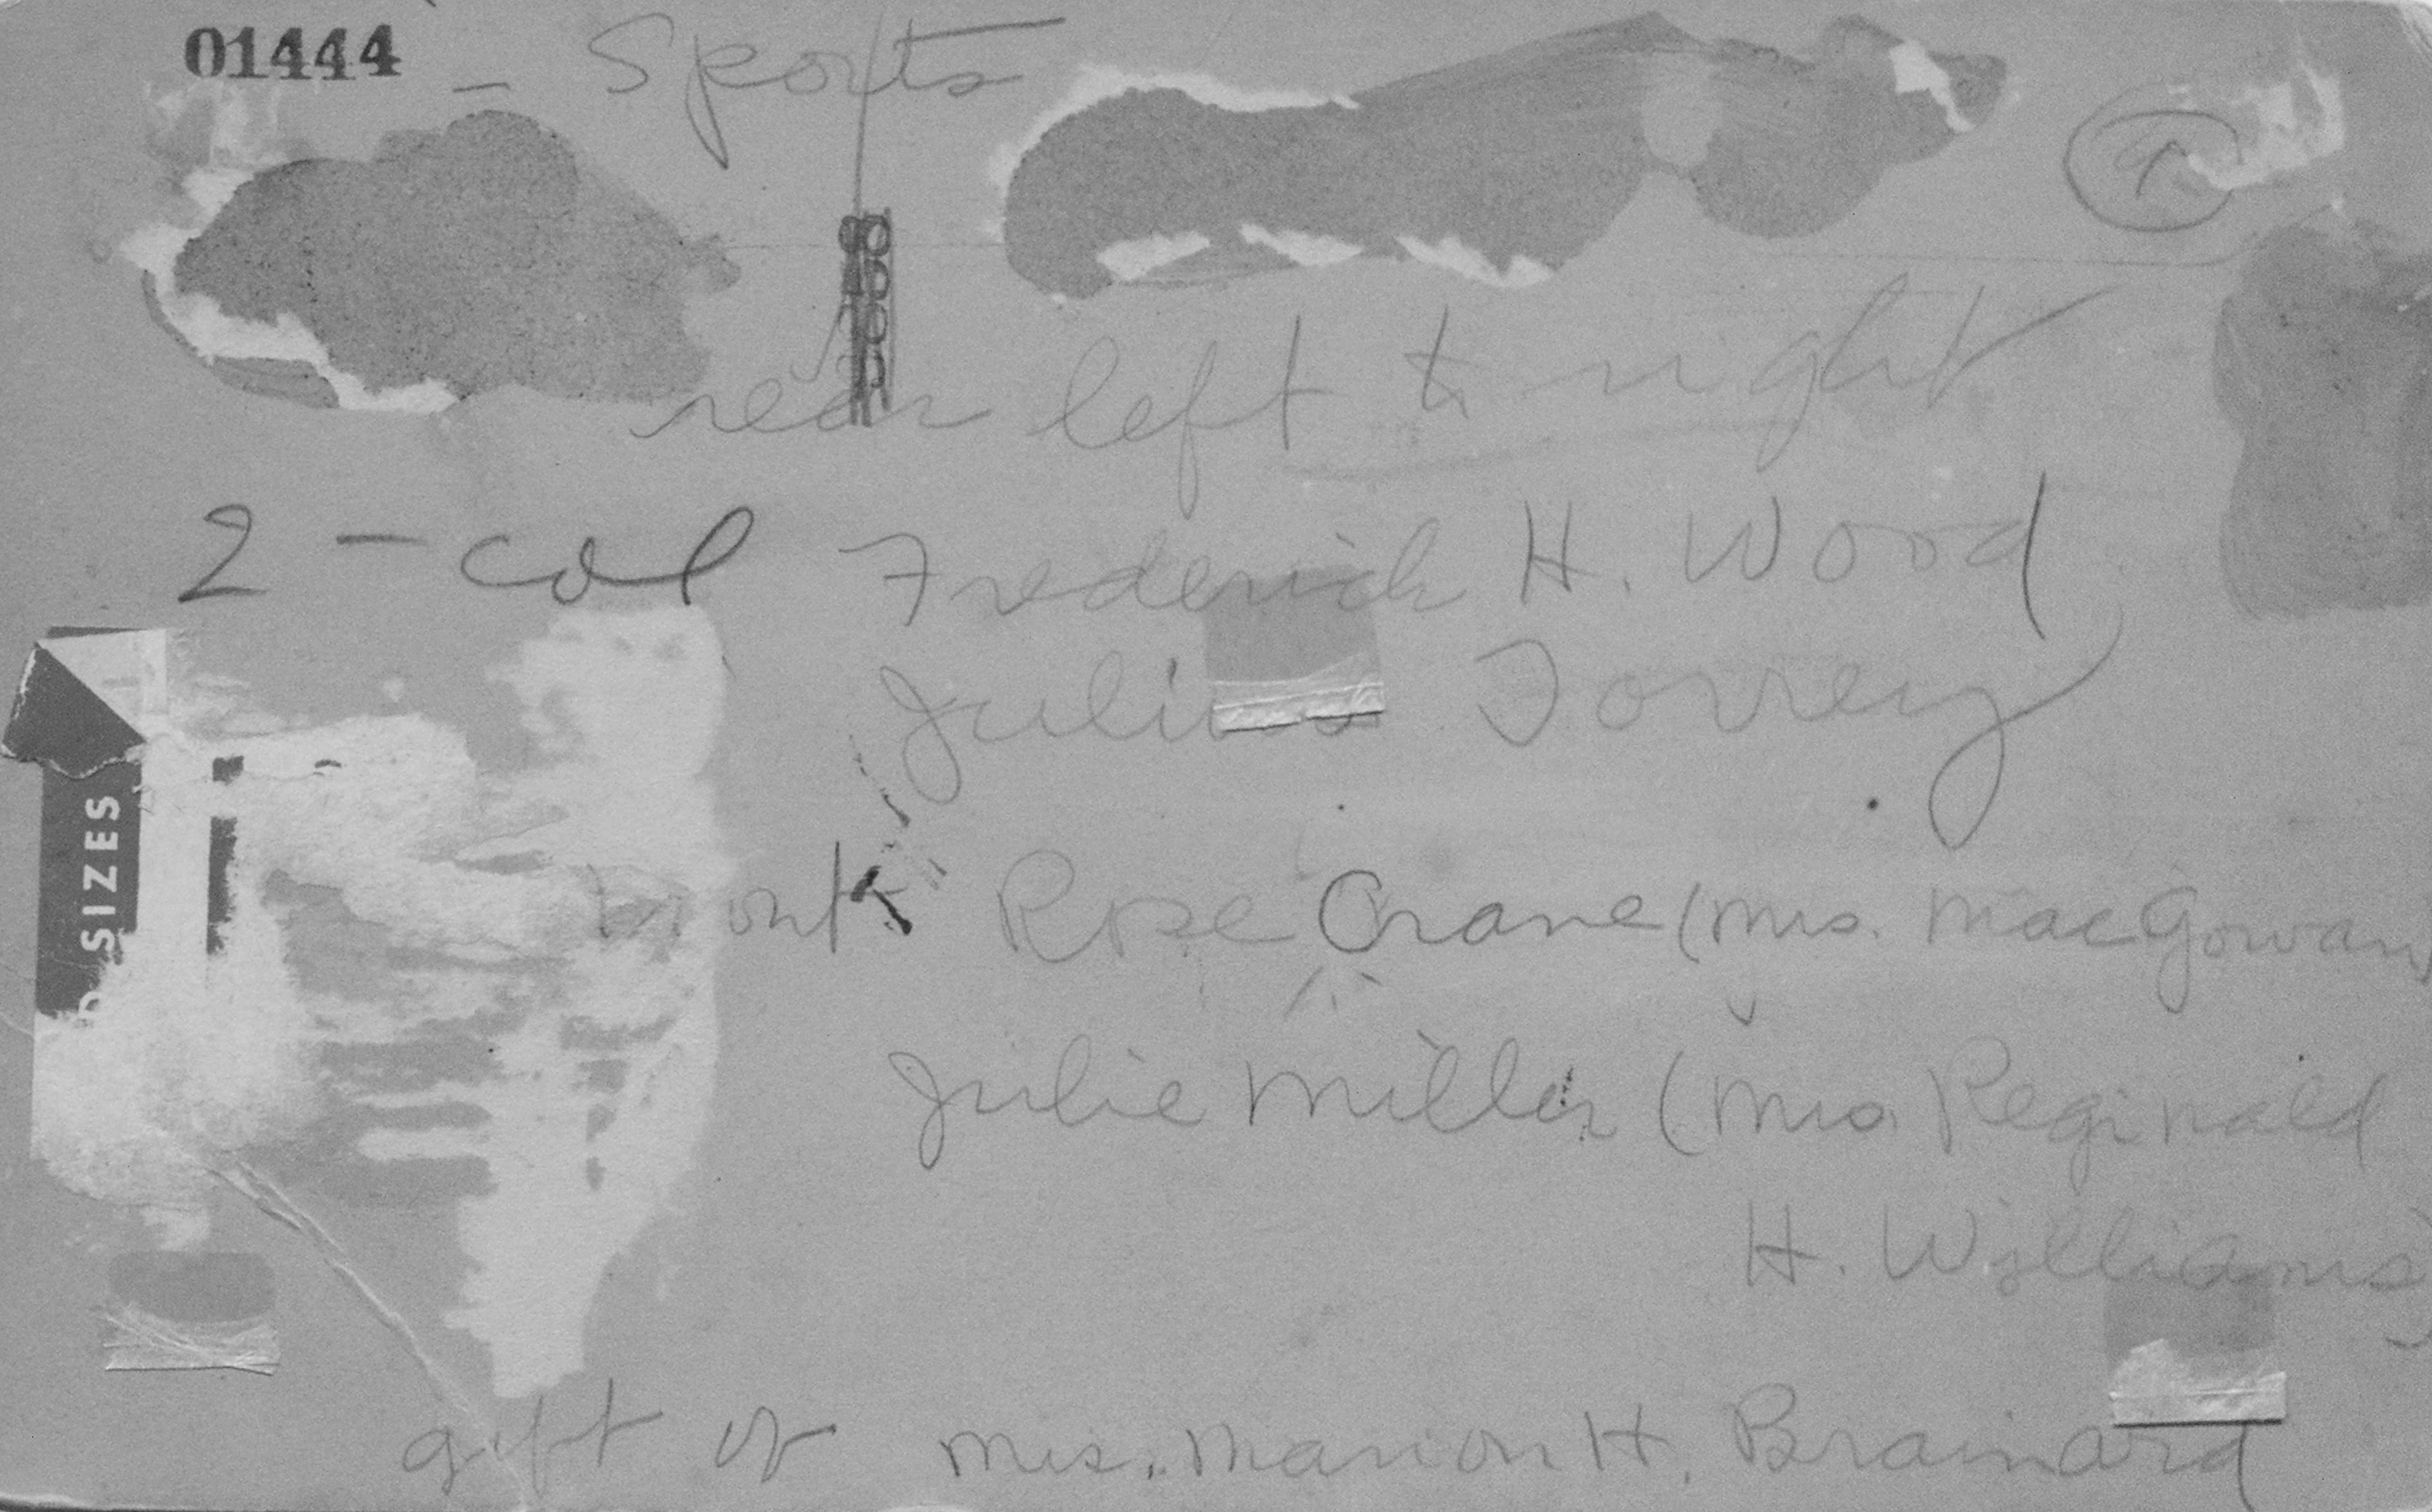 01444 - Sports
rear left to right
2-col Frederick H. Wood
Julius Torrey
Front Rose Crane (Mrs. MacGowan)
Julie Miller (Mrs. Reginald
H. Williams)
gift of Mrs. Marion H. Brainard
D SIZES